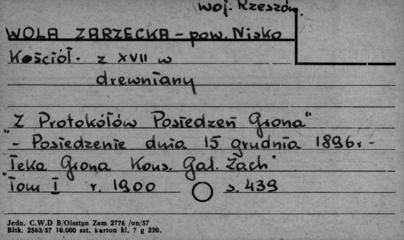 woj. Rzeszów.
WOLA ZARZECKA - pow. Nisko
Kościół. z XVII w
drewniany
"Z Protokółów Posiedzeń Grona"
- Posiedzenie dnia 15 grudnia 1896r -
"Teka Grona Kons. Gal. Zach"
Tom I r. 1900 s. 439
Jedn. C.W.D B/Olsztyn Zam 2776 /on/57
Bltk. 2563/57 10.000 szt. karton kl. 7 g 220.